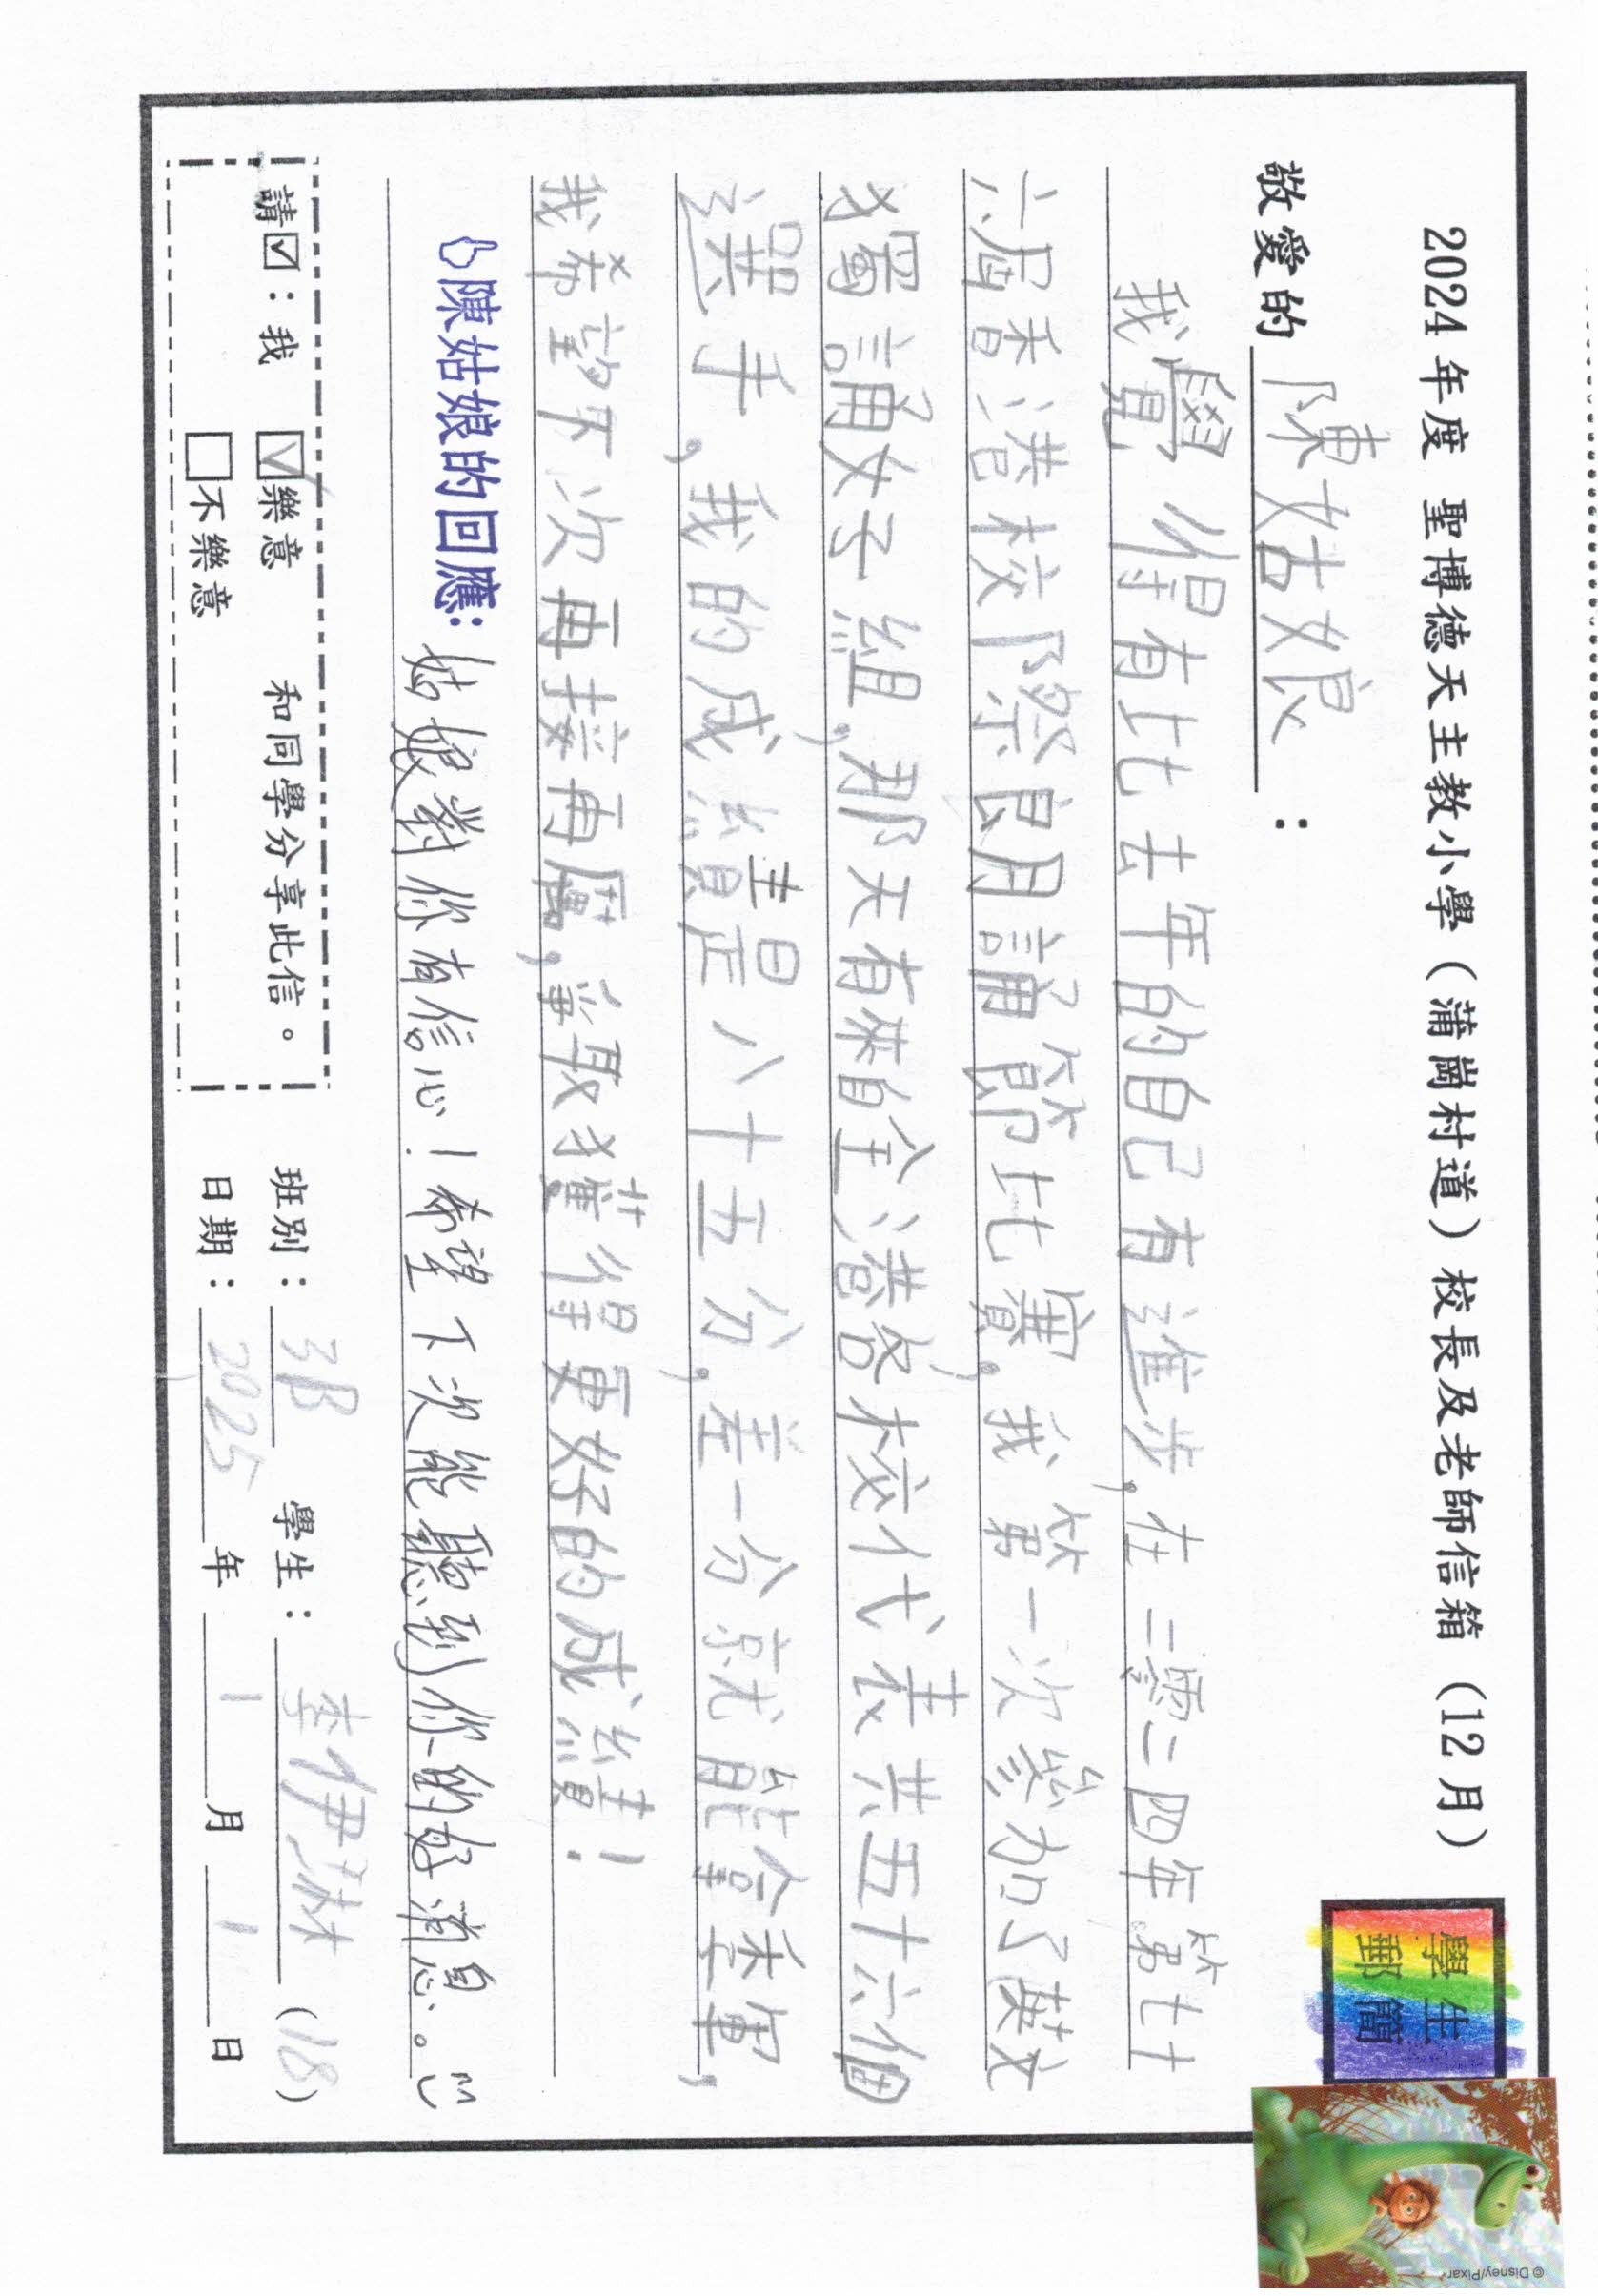 2024年度 聖博德天主教小學（蒲崗村道）校長及老師信箱（12月）
學生
郵簡
敬愛的 陳姑娘 ：
我覺得有比去年的自己有進步，在二零二四年第七十
六屆香港校際朗誦節比賽，我第一次參加了散文
獨誦女子組，那天有來自全港各校代表共五十六個
選手，我的成績是八十五分，差一分就能拿季軍，
我希望下次再接再厲，爭取獲得更好的成績！
陳姑娘的回應：姑娘對你有信心！希望下次能聽到你的好消息。
請☑：我 ☑樂意 和同學分享此信。
□不樂意
班別：3B 學生：李伊琳（18）
日期：2025年1月1日
© Disney/Pixar